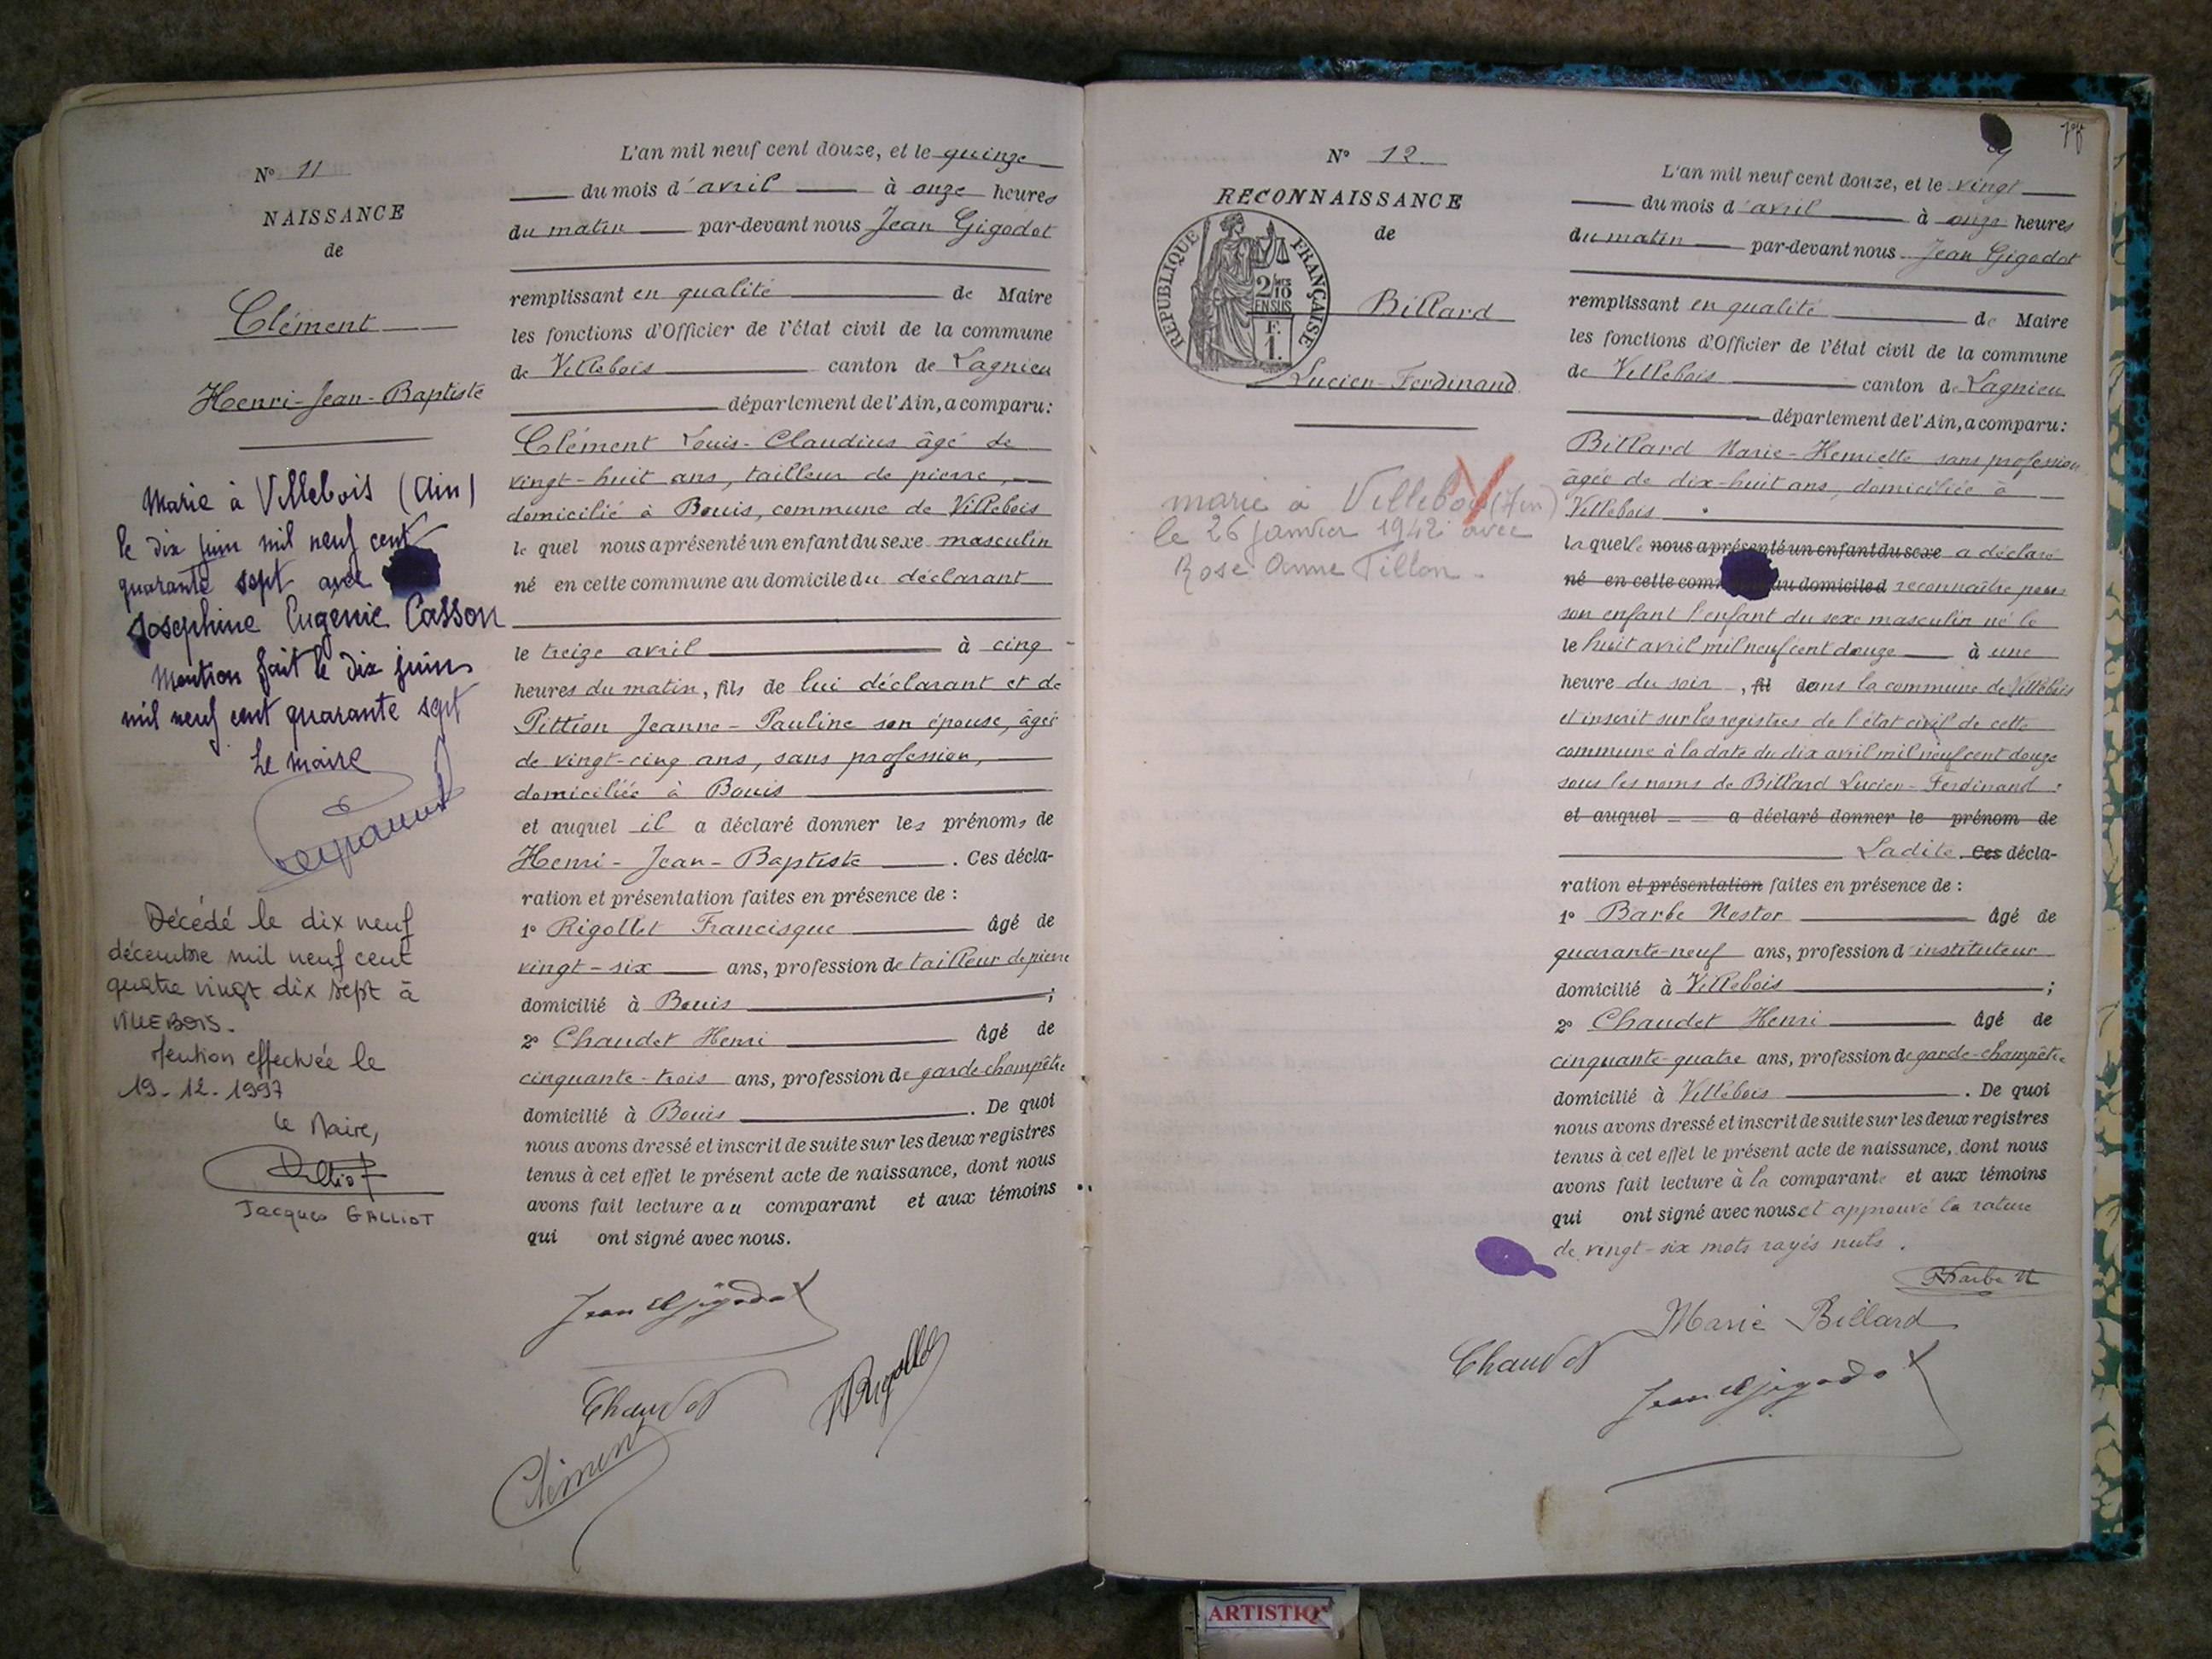 N° 11
NAISSANCE
de
Clément
Henri-Jean-Baptiste
Marié à Villebois (Ain)
le dix juin mil neuf cent
quarante sept avec
Josephine Eugénie Casson
Mention fait le dix juin
mil neuf cent quarante sept
Le maire
Décédé le dix neuf
décembre mil neuf cent
quatre vingt dix sept à
VILLEBOIS.
Mention effectuée le
19-12-1997
Le Maire,
Jacques GALLIOT
L'an mil neuf cent douze, et le quinze
du mois d'avril à onze heures
du matin par-devant nous Jean Gigodot
remplissant en qualité de Maire
les fonctions d'Officier de l'état civil de la commune
de Villebois canton de Lagnieu
département de l'Ain, a comparu:
Clément Louis-Claudius âgé de
vingt-huit ans, tailleur de pierre,
domicilié à Bouis, commune de Villebois
le quel nous a présenté un enfant du sexe masculin
né en cette commune au domicile du déclarant
le treize avril à cinq
heures du matin, fils de lui déclarant et de
Pittion Jeanne-Pauline son épouse, âgée
de vingt-cinq ans, sans profession,
domiciliée à Bouis
et auquel il a déclaré donner les prénoms de
Henri-Jean-Baptiste. Ces décla-
ration et présentation faites en présence de :
1° Rigollet Francisque âgé de
vingt-six ans, profession de tailleur de pierre
domicilié à Bouis ;
2° Chaudet Henri âgé de
cinquante-trois ans, profession de garde-champêtre
domicilié à Bouis. De quoi
nous avons dressé et inscrit de suite sur les deux registres
tenus à cet effet le présent acte de naissance, dont nous
avons fait lecture au comparant et aux témoins
qui ont signé avec nous.
Jean Gigodot
Chaudet
Rigollet
Clément
N° 12
RECONNAISSANCE
de
RÉPUBLIQUE FRANÇAISE
2/10
EN SUS
F.
1.
Billard
Lucien-Ferdinand
marié à Villebois (Ain)
le 26 janvier 1942 avec
Rose Anne Tillon.
L'an mil neuf cent douze, et le vingt
du mois d'avril à onze heures
du matin par-devant nous Jean Gigodot
remplissant en qualité de Maire
les fonctions d'Officier de l'état civil de la commune
de Villebois canton de Lagnieu
département de l'Ain, a comparu:
Billard Marie-Henriette sans profession
âgée de dix-huit ans, domiciliée à
Villebois
laquelle nous a présenté un enfant du sexe a déclaré
né en cette com au domicile d reconnaître pour
son enfant l'enfant du sexe masculin né le
le huit avril mil neuf cent douze à une
heure du soir, fil dans la commune de Villebois
et inscrit sur les registres de l'état civil de cette
commune à la date du dix avril mil neuf cent douze
sous les noms de Billard Lucien-Ferdinand.
et auquel a déclaré donner le prénom de
Ladite. Ces décla-
ration et présentation faites en présence de :
1° Barbe Nestor âgé de
quarante-neuf ans, profession d'instituteur
domicilié à Villebois ;
2° Chaudet Henri âgé de
cinquante-quatre ans, profession de garde-champêtre
domicilié à Villebois. De quoi
nous avons dressé et inscrit de suite sur les deux registres
tenus à cet effet le présent acte de naissance, dont nous
avons fait lecture à la comparante et aux témoins
qui ont signé avec nous et approuvé la rature
de vingt-six mots rayés nuls.
Barbe N
Marie Billard
Chaudet
Jean Gigodot
ARTISTIQ